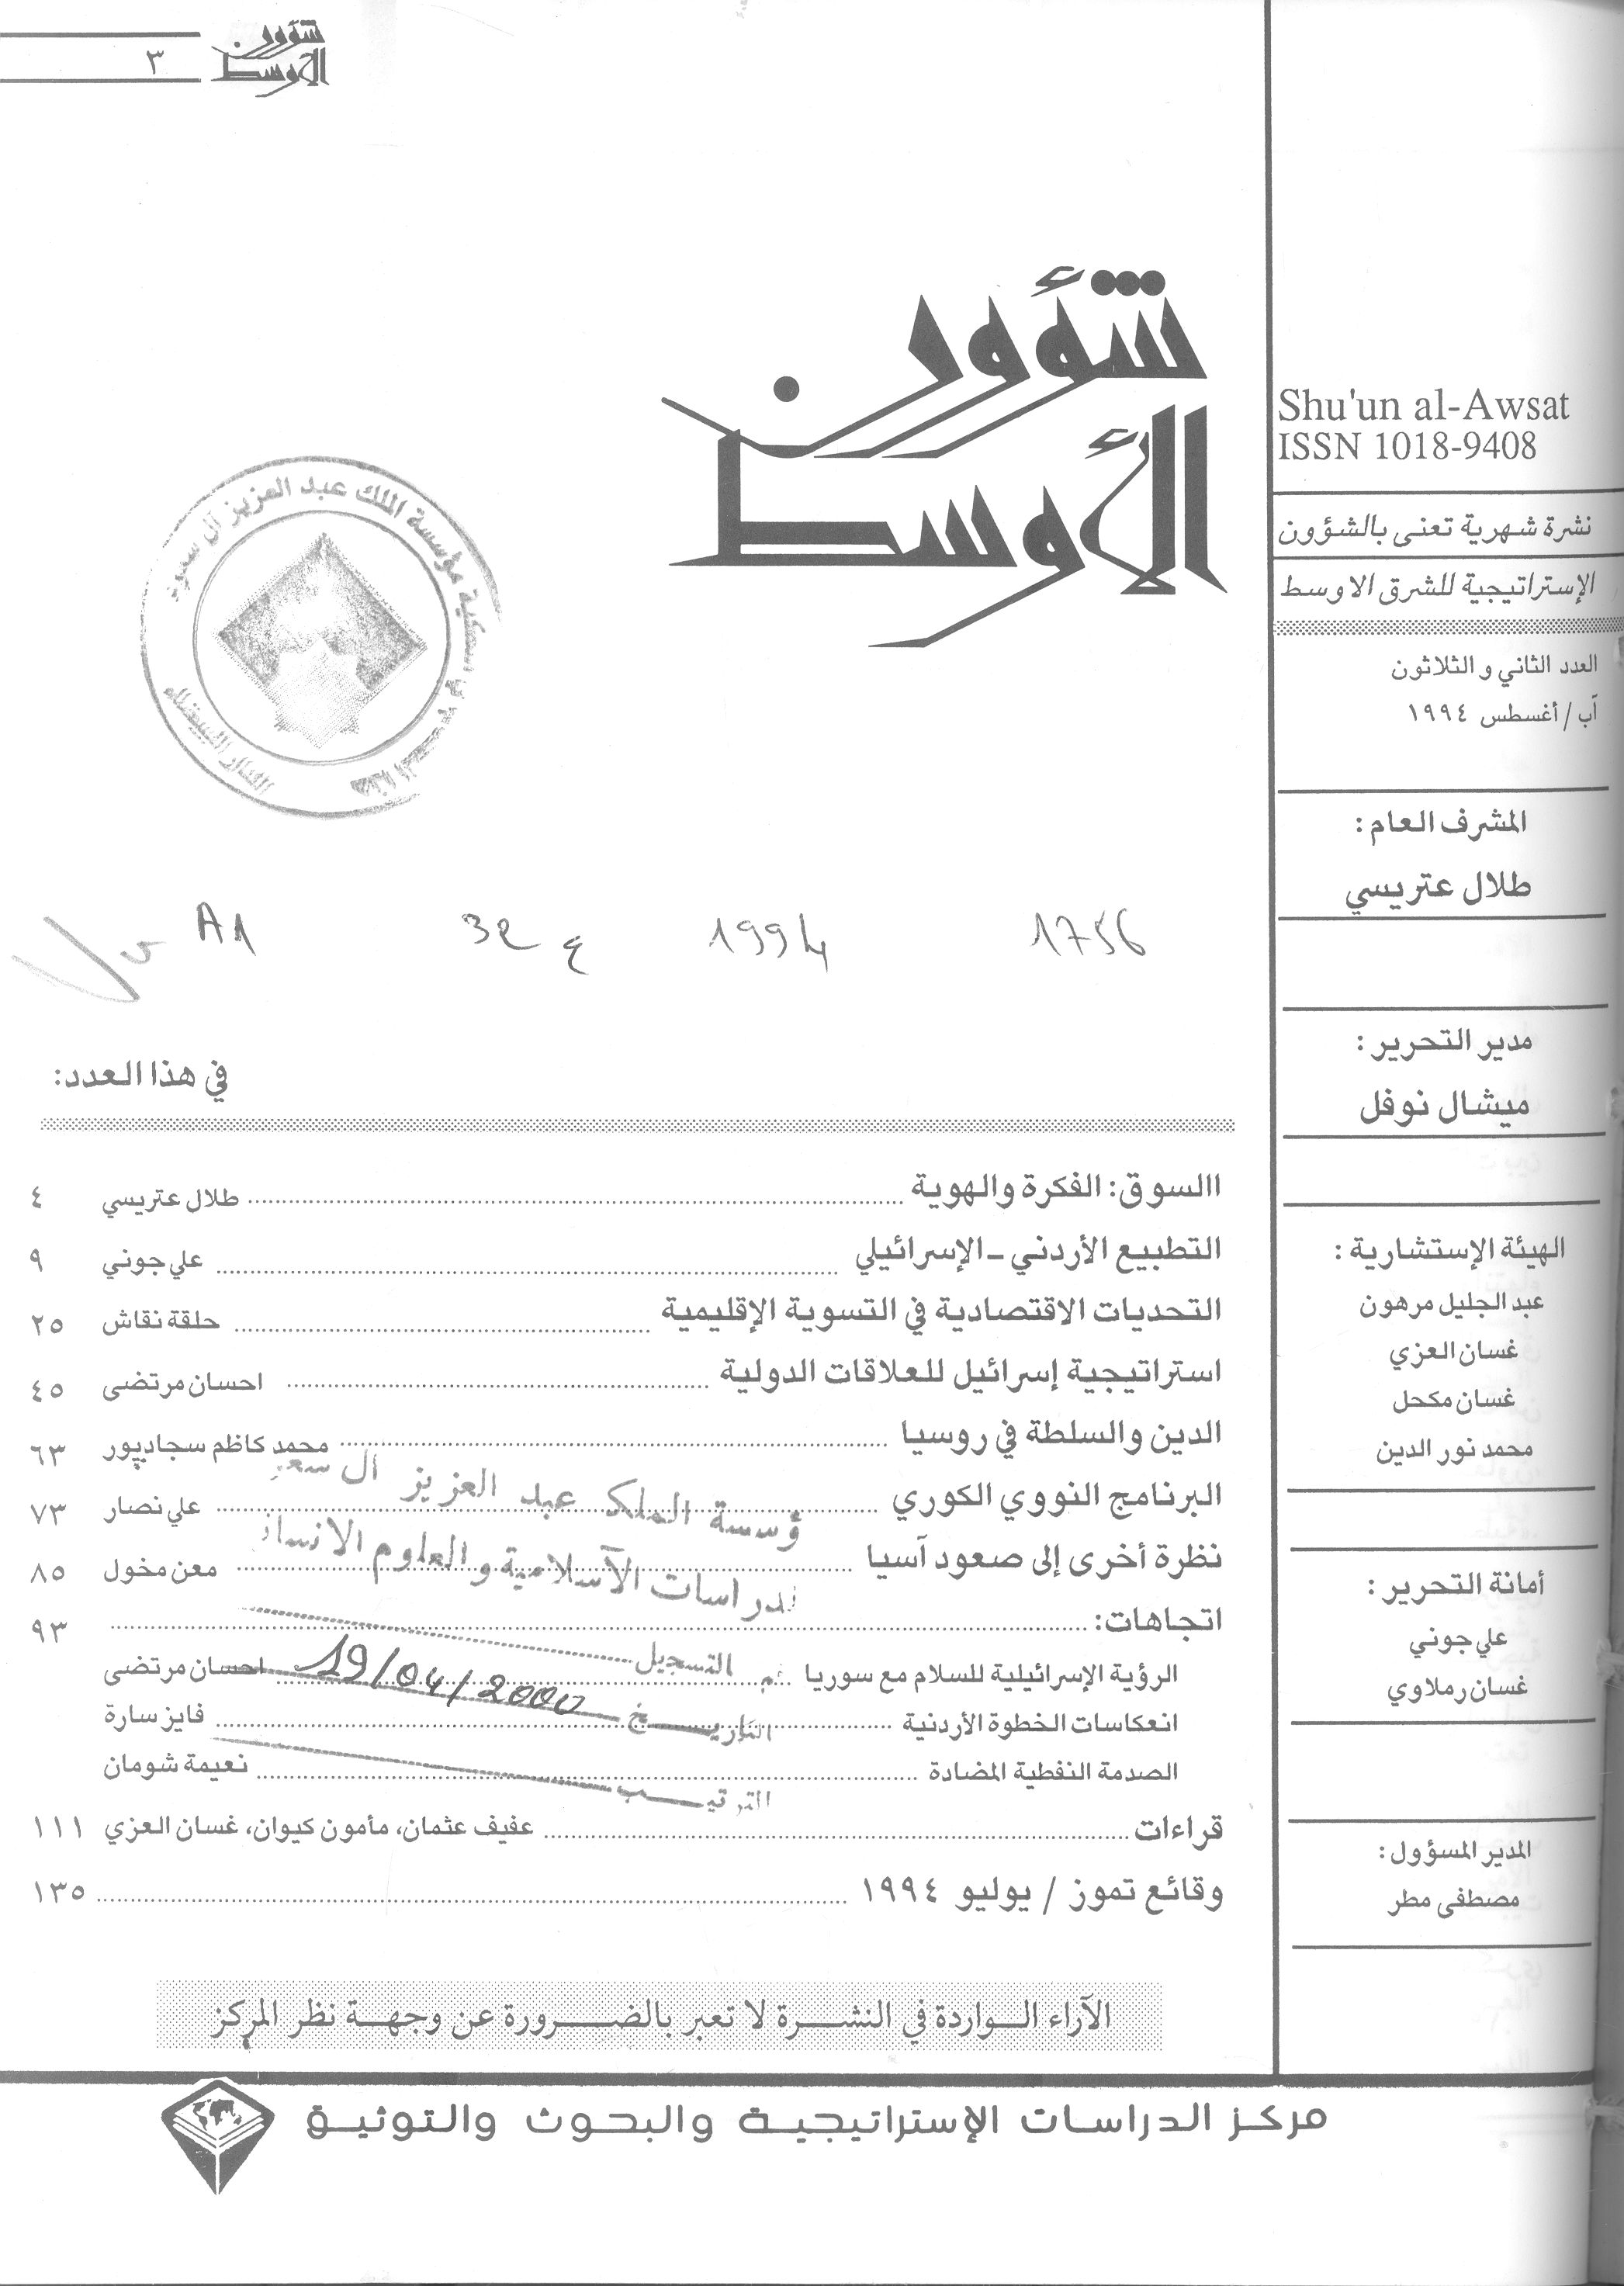 شؤون
الأوسط
٣
شؤون
الأوسط
Shu'un al-Awsat
ISSN 1018-9408
نشرة شهرية تعنى بالشؤون
الإستراتيجية للشرق الاوسط
العدد الثاني والثلاثون
آب / أغسطس ١٩٩٤
المشرف العام :
طلال عتريسي
مدير التحرير :
ميشال نوفل
الهيئة الإستشارية :
عبد الجليل مرهون
غسان العزي
غسان مكحل
محمد نور الدين
أمانة التحرير :
علي جوني
غسان رملاوي
المدير المسؤول :
مصطفى مطر
مؤسسة الملك عبد العزيز آل سعود
الدار البيضاء
A1 32 ع 1994 1756
في هذا العدد:
االسوق: الفكرة والهوية طلال عتريسي ٤
التطبيع الأردني ـ الإسرائيلي علي جوني ٩
التحديات الاقتصادية في التسوية الإقليمية حلقة نقاش ٢٥
استراتيجية إسرائيل للعلاقات الدولية احسان مرتضى ٤٥
الدين والسلطة في روسيا محمد كاظم سجادپور ٦٣
البرنامج النووي الكوري علي نصار ٧٣
نظرة أخرى إلى صعود آسيا معن مخول ٨٥
اتجاهات: ٩٣
الرؤية الإسرائيلية للسلام مع سوريا احسان مرتضى
انعكاسات الخطوة الأردنية فايز سارة
الصدمة النفطية المضادة نعيمة شومان
قراءات عفيف عثمان، مأمون كيوان، غسان العزي ١١١
وقائع تموز / يوليو ١٩٩٤ ١٣٥
ؤسسة الملك عبد العزيز ال سعو
لدراسات الآسلامية و العلوم الانسا
التسجيل
التاريــخ 19/04/2000
الترتيــب
الآراء الــواردة في النشــرة لا تعبر بالضــرورة عن وجهــة نظر المركز
مركز الدراسات الإستراتيجية والبحوث والتوثيق